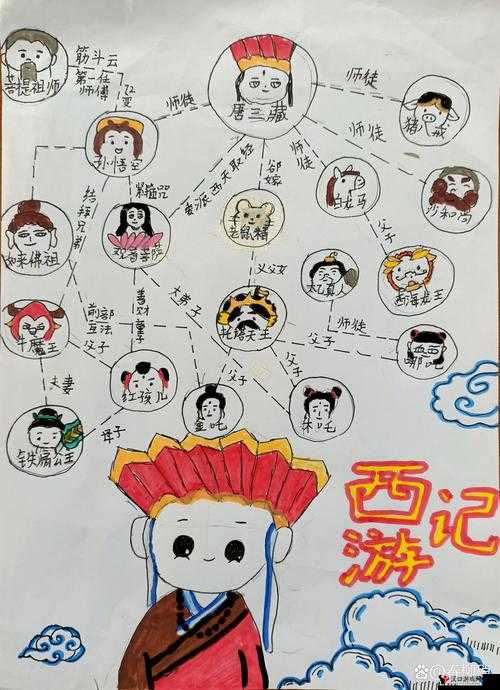 筋斗云
第一任
师傅
72变
菩提祖师
师徒
唐三藏
师徒
猪八戒
孙悟空
师徒
师徒
委派西天取经
欲嫁
紧箍咒
结拜兄弟
白龙马
沙和尚
如来佛祖
观音菩萨
老鼠精
父子
义父女
太乙真人
西海龙王
善财童子
大弟子
托塔天王
师徒
牛魔王
父子
父子
哪吒
夫妻
红孩儿
父子
父子
金吒
木吒
铁扇公主
母子
西游记
汉口游戏网